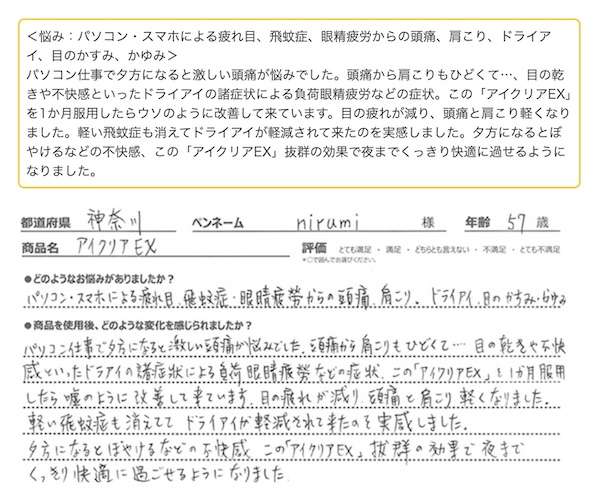 ＜悩み：パソコン・スマホによる疲れ目、飛蚊症、眼精疲労からの頭痛、肩こり、ドライア
イ、目のかすみ、かゆみ＞
パソコン仕事で夕方になると激しい頭痛が悩みでした。頭痛から肩こりもひどくて…、目の乾
きや不快感といったドライアイの諸症状による負荷眼精疲労などの症状。この「アイクリアEX」
を1か月服用したらウソのように改善して来ています。目の疲れが減り、頭痛と肩こり軽くなり
ました。軽い飛蚊症も消えてドライアイが軽減されて来たのを実感しました。夕方になるとぼ
やけるなどの不快感、この「アイクリアEX」抜群の効果で夜までくっきり快適に過せるように
なりました。
都道府県 神奈川 ペンネーム nirumi 様 年齢 57 歳
商品名 アイクリアEX 評価 とても満足 ・ 満足 ・ どちらとも言えない ・ 不満足 ・ とても不満足
*○で囲んでお選びください。
●どのようなお悩みがありましたか？
パソコン・スマホによる疲れ目、飛蚊症・眼睛疲労からの頭痛、肩こり、ドライアイ、目のかすみ・かゆみ
●商品を使用後、どのような変化を感じられましたか？
パソコン仕事で夕方になると激しい頭痛が悩みでした。頭痛から肩こりもひどくて… 目の乾きや不快
感といったドライアイの諸症状による負荷眼睛疲労などの症状、この「アイクリアEX」を1か月服用
したら嘘のように改善して来ています。目の疲れが減り、頭痛と肩こり軽くなりました。
軽い飛蚊症も消えてて ドライアイが軽減されて来たのを実感しました。
夕方になるとぼやけるなどの不快感 この「アイクリアEX」抜群の効果で夜まで
くっきり快適に過ごせるようになりました。